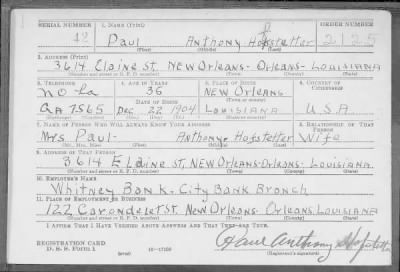 SERIAL NUMBER 1. NAME (Print) ORDER NUMBER
42 Paul Anthony Hofstetter 2125
(First) (Middle) (Last)
2. ADDRESS (Print)
3614 Elaine St. NEW ORLEANS - Orleans - Louisiana
(Number and street or R. F. D. number) (Town) (County) (State)
3. TELEPHONE 4. AGE IN YEARS 5. PLACE OF BIRTH 6. COUNTRY OF CITIZENSHIP
no-La 36 New ORLEANS
(Town or county)
GA 7565 DEC 22 1904 Louisiana U.S.A.
(Exchange) (Number) (Mo.) (Day) (Yr.) (State or country)
7. NAME OF PERSON WHO WILL ALWAYS KNOW YOUR ADDRESS 8. RELATIONSHIP OF THAT PERSON
Mrs Paul - Anthony - Hofstetter Wife
(Mr., Mrs., Miss) (First) (Middle) (Last)
9. ADDRESS OF THAT PERSON
3614 ELaine ST, NEW ORLEANS - Orleans - Louisiana.
(Number and street or R. F. D. number) (Town) (County) (State)
10. EMPLOYER'S NAME
Whitney Bank - City Bank Branch
11. PLACE OF EMPLOYMENT OR BUSINESS
122 Carondelet St. New Orleans - Orleans. Louisiana
(Number and street or R. F. D. number) (Town) (County) (State)
I AFFIRM THAT I HAVE VERIFIED ABOVE ANSWERS AND THAT THEY ARE TRUE.
REGISTRATION CARD
D. S. S. FORM 1 (over) Paul Anthony Hofstetter
(Registrant's signature)